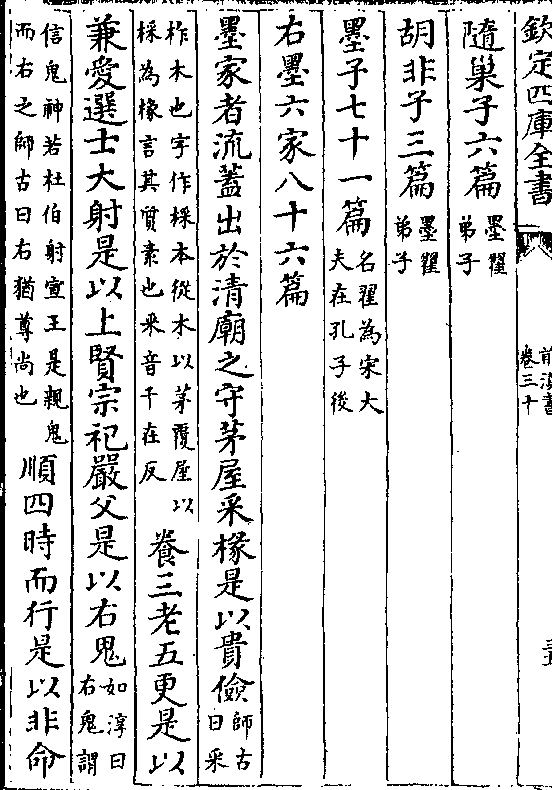 欽定四庫全書
前漢書
卷三十
隨巢子六篇墨翟
弟子
胡非子三篇墨翟
弟子
墨子七十一篇名翟為宋大
夫在孔子後
右墨六家八十六篇
墨家者流蓋出於清廟之守茅屋采椽是以貴儉師古
曰采
柞木也字作棌本從木以茅覆屋以
棌為椽言其質素也采音千在反
養三老五更是以
兼愛選士大射是以上賢宗祀嚴父是以右鬼如淳曰
右鬼謂
信鬼神若杜伯射宣王是親鬼
而右之師古曰右猶尊尚也
順四時而行是以非命